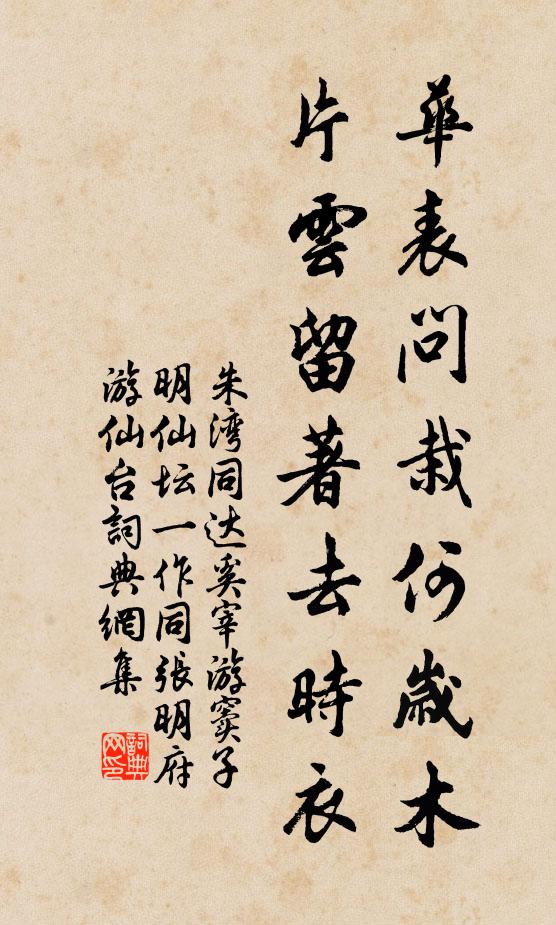 華表問栽何歲木
片雲留著去時衣
朱湾同达奚宰游窦子
明仙坛一作同張明府
游仙台詞典網集
詞典
网印